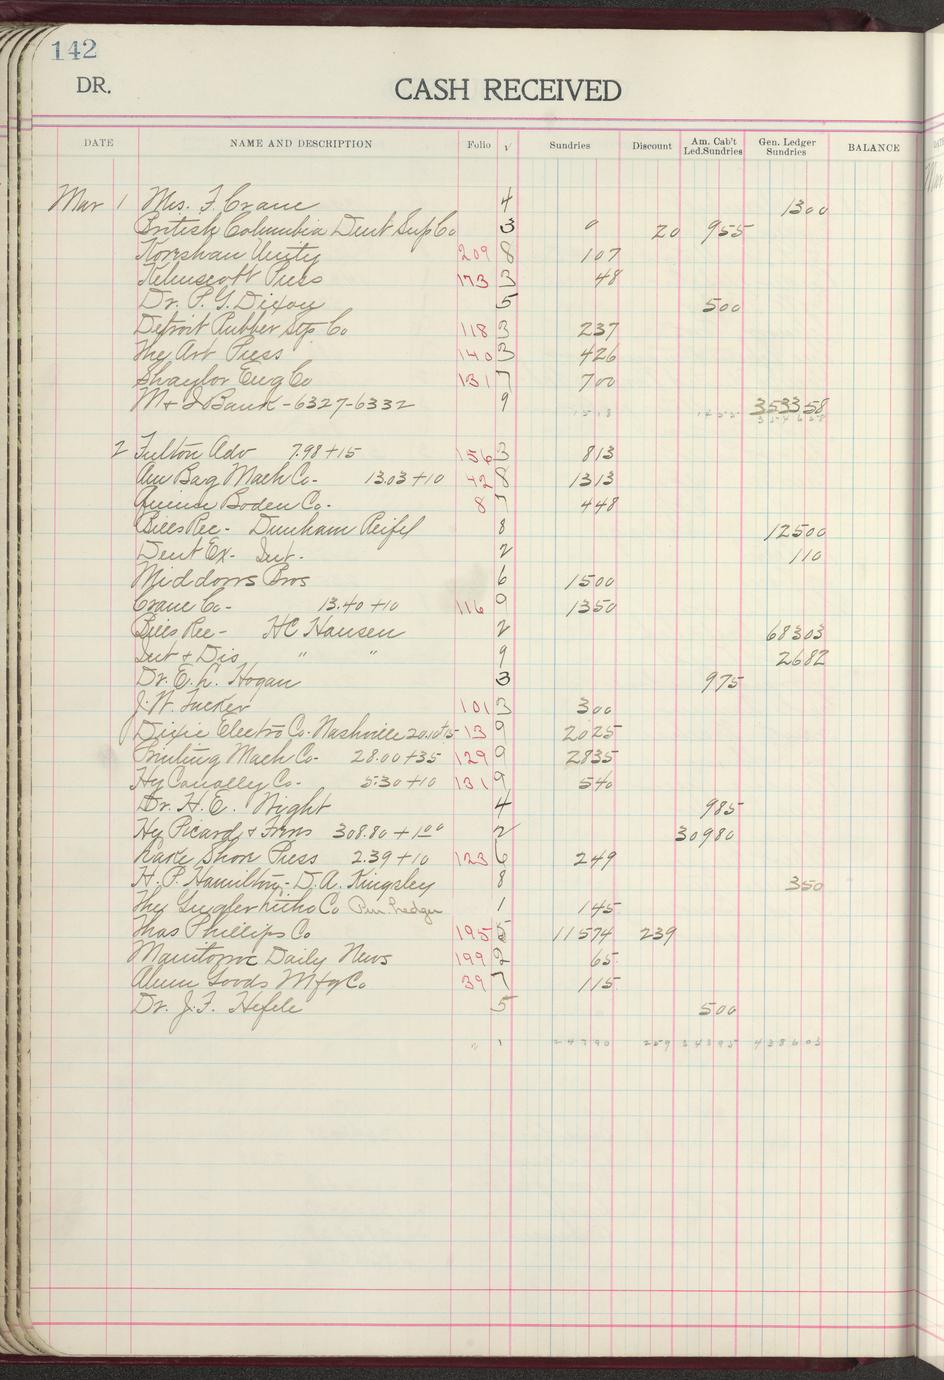 142
DR. CASH RECEIVED
DATE NAME AND DESCRIPTION Folio √ Sundries Discount Am. Cab't Led.Sundries Gen. Ledger Sundries BALANCE
Mar 1 Mrs. F. Crane 4 1300
British Columbia Dent Sup Co 3 0 20 955
Koreshan Unity 209 8 107
Kelmscott Press 173 3 48
Dr. P. G. Dixon 5 500
Detroit Rubber Stp. Co 118 3 237
The Art Press 140 3 426
Shaylor Eng Co 131 7 700
M + I Bank - 6327-6332 9 1518 1455 353358
2 Fulton Adv 7.98 + 15 156 3 813
Am Bag Mach Co - 13.03 + 10 42 8 1313
Boden Co - 8 7 448
Bills Rec - Dunham Reifel 8 12500
Dent Ex - Int - 2 110
Middows Bros 6 1500
Crane Co - 13.40 + 10 116 9 1350
Bills Rec - HC Hansen 2 68303
Int + Dis " " 9 2682
Dr. E. L. Hogan 3 975
J. W. Tucker 101 3 300
Dixie Electro Co - Nashville 13 9 2025
Printing Mach Co - 28.00 + 35 129 9 2835
Hy Conolly Co - 5.30 + 10 131 9 540
Dr. H. E. Night 4 985
Hy Picard & Frers 308.80 + 1.00 2 30980
Lake Shore Press 2.39 + 10 123 6 249
H. P. Hamilton - D. A. Kingsley 8 350
The Gugler Litho Co Pur. Ledger 1 145
Thos Phillips Co 195 5 11574 239
Manitowoc Daily News 199 2 65
Alum Goods Mfg Co 39 7 115
Dr. J. F. Hefele 5 500
24790 259 34395 438603